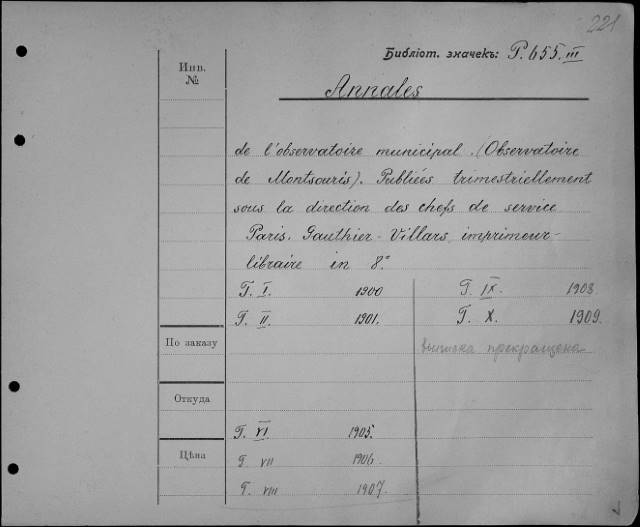 221
Библіот. значекъ: P.655.III
Инв.
№
Annales
de l'observatoire municipal (Observatoire
de Montsouris). Publiées trimestriellement
sous la direction des chefs de service.
Paris. Gauthier-Villars, imprimeur-
libraire in 8.°
T. I. 1900
T. II. 1901.
T. IX. 1908
T. X. 1909.
выписка прекращена
По заказу
Откуда
Цѣна
T. VI 1905.
T. VII 1906.
T. VIII 1907.